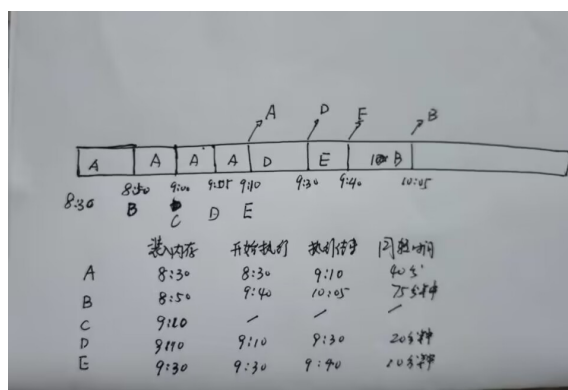 A D E B
A A A A D E B
8:30 8:50 9:00 9:05 9:10 9:30 9:40 10:05
B C D E
装入内存 开始执行 执行结束 周转时间
A 8:30 8:30 9:10 40分
B 8:50 9:40 10:05 75分钟
C 9:10 / / /
D 9:10 9:10 9:30 20分钟
E 9:30 9:30 9:40 10分钟